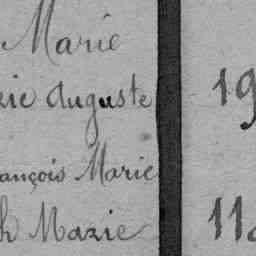 Marie
rie Auguste 19
ançois Marie
h Marie 11